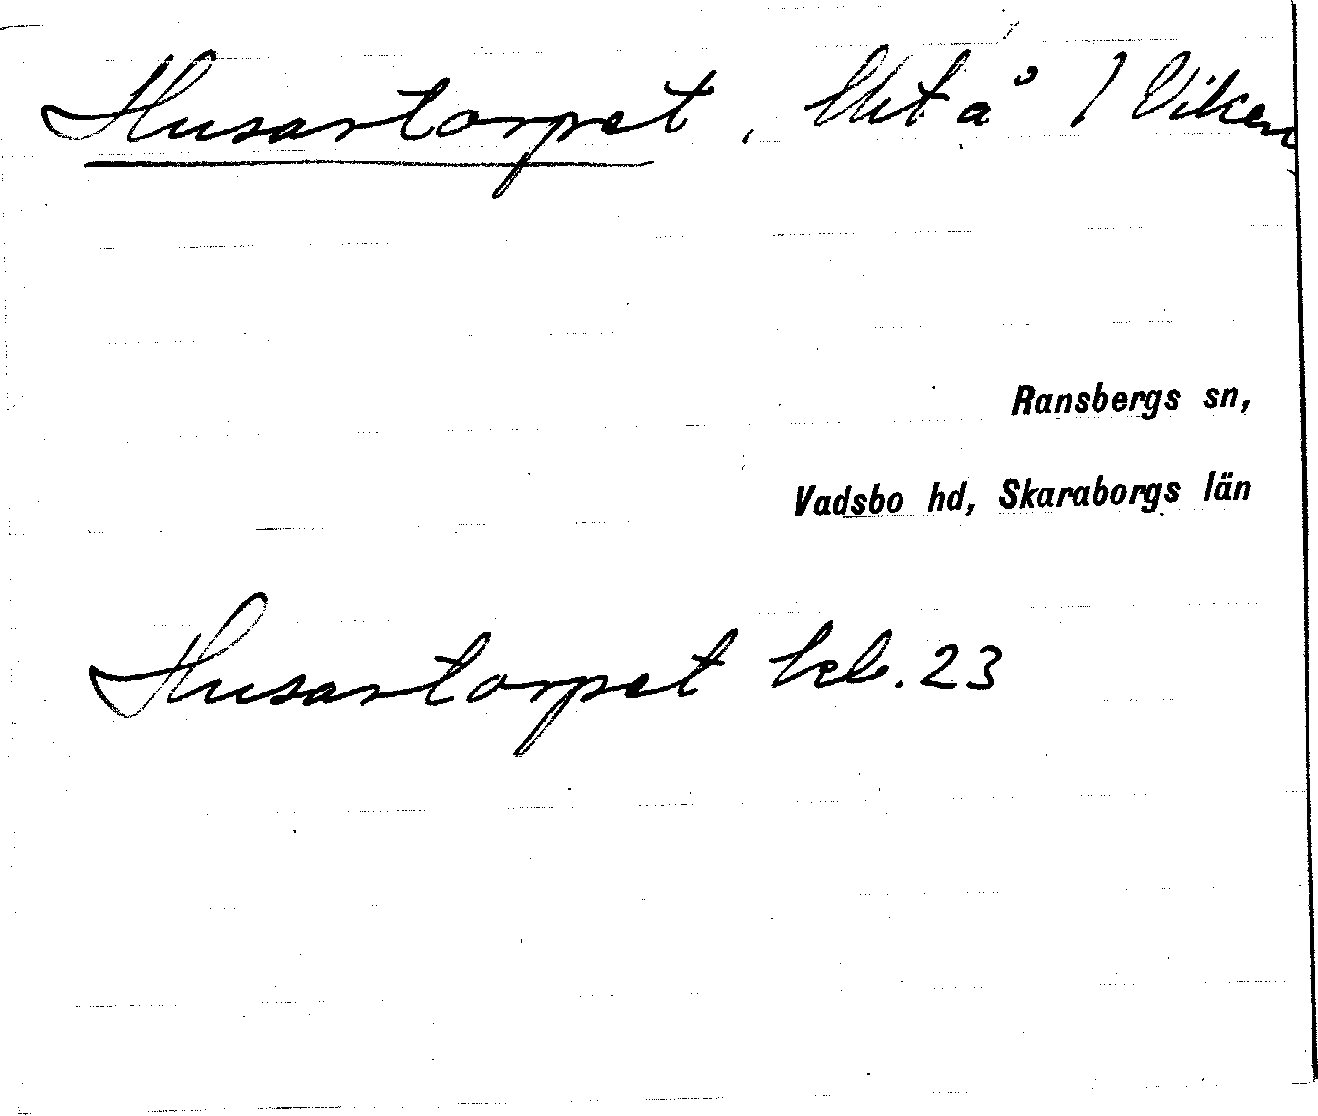 Husartorpet, lht å 1 Viken
Ransbergs sn,
Vadsbo hd, Skaraborgs län
Husartorpet kb. 23